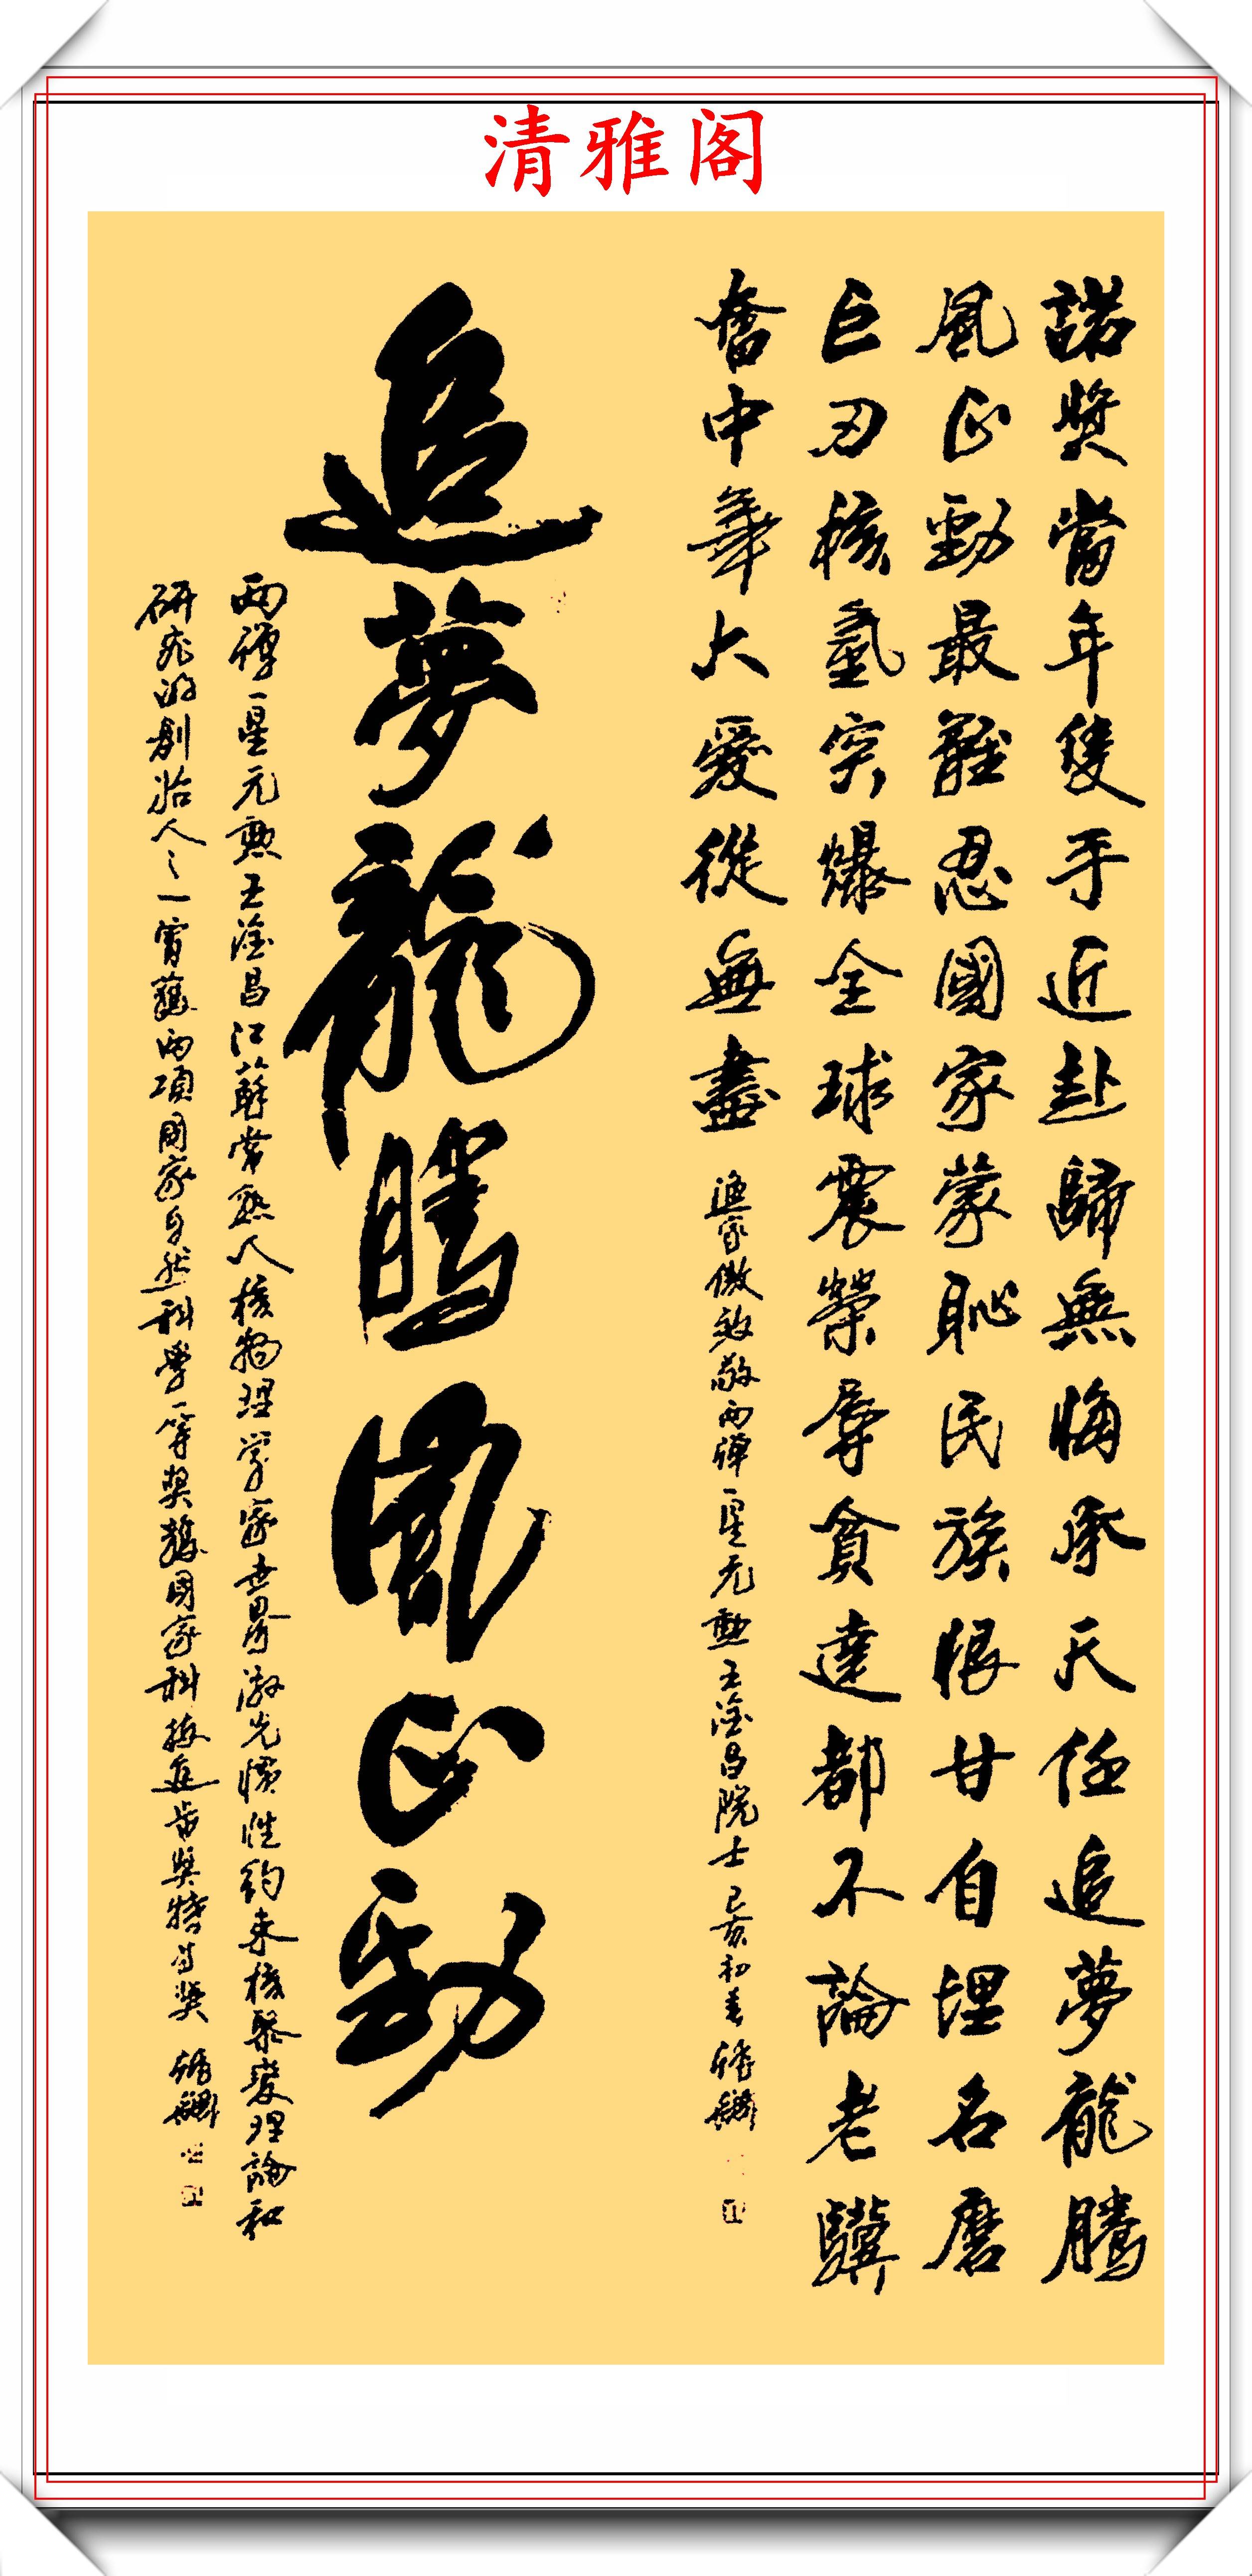 清雅阁
諾獎當年隻手近赴歸無悔承天任追夢龍騰
風正勁最難忍國家蒙恥民族恨甘自埋名磨
巨刃核氫突爆全球震榮辱貧達都不論老驥
奮中華大愛從無盡
漁家傲致敬两弹一星元勳王淦昌院士己亥初春
追夢龍騰風正勁
两彈一星元勳王淦昌江蘇常熟人核物理学家世界激光惯性约束核聚變理論和
研究的創始人之一曾獲两項國家自然科學一等奖獲國家科技進步奖特等奖